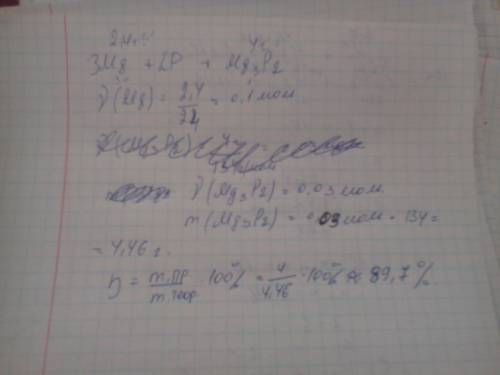 2,4 г 4 г
3Mg + 2P = Mg3P2
ν(Mg) = 2,4/24 = 0,1 мол.
ν(Mg3P2) = 0,03 мол.
m(Mg3P2) = 0,03 мол · 134 =
= 4,46 г.
η = m.пр/m.теор. · 100% = 4/4,46 · 100% ≈ 89,7%